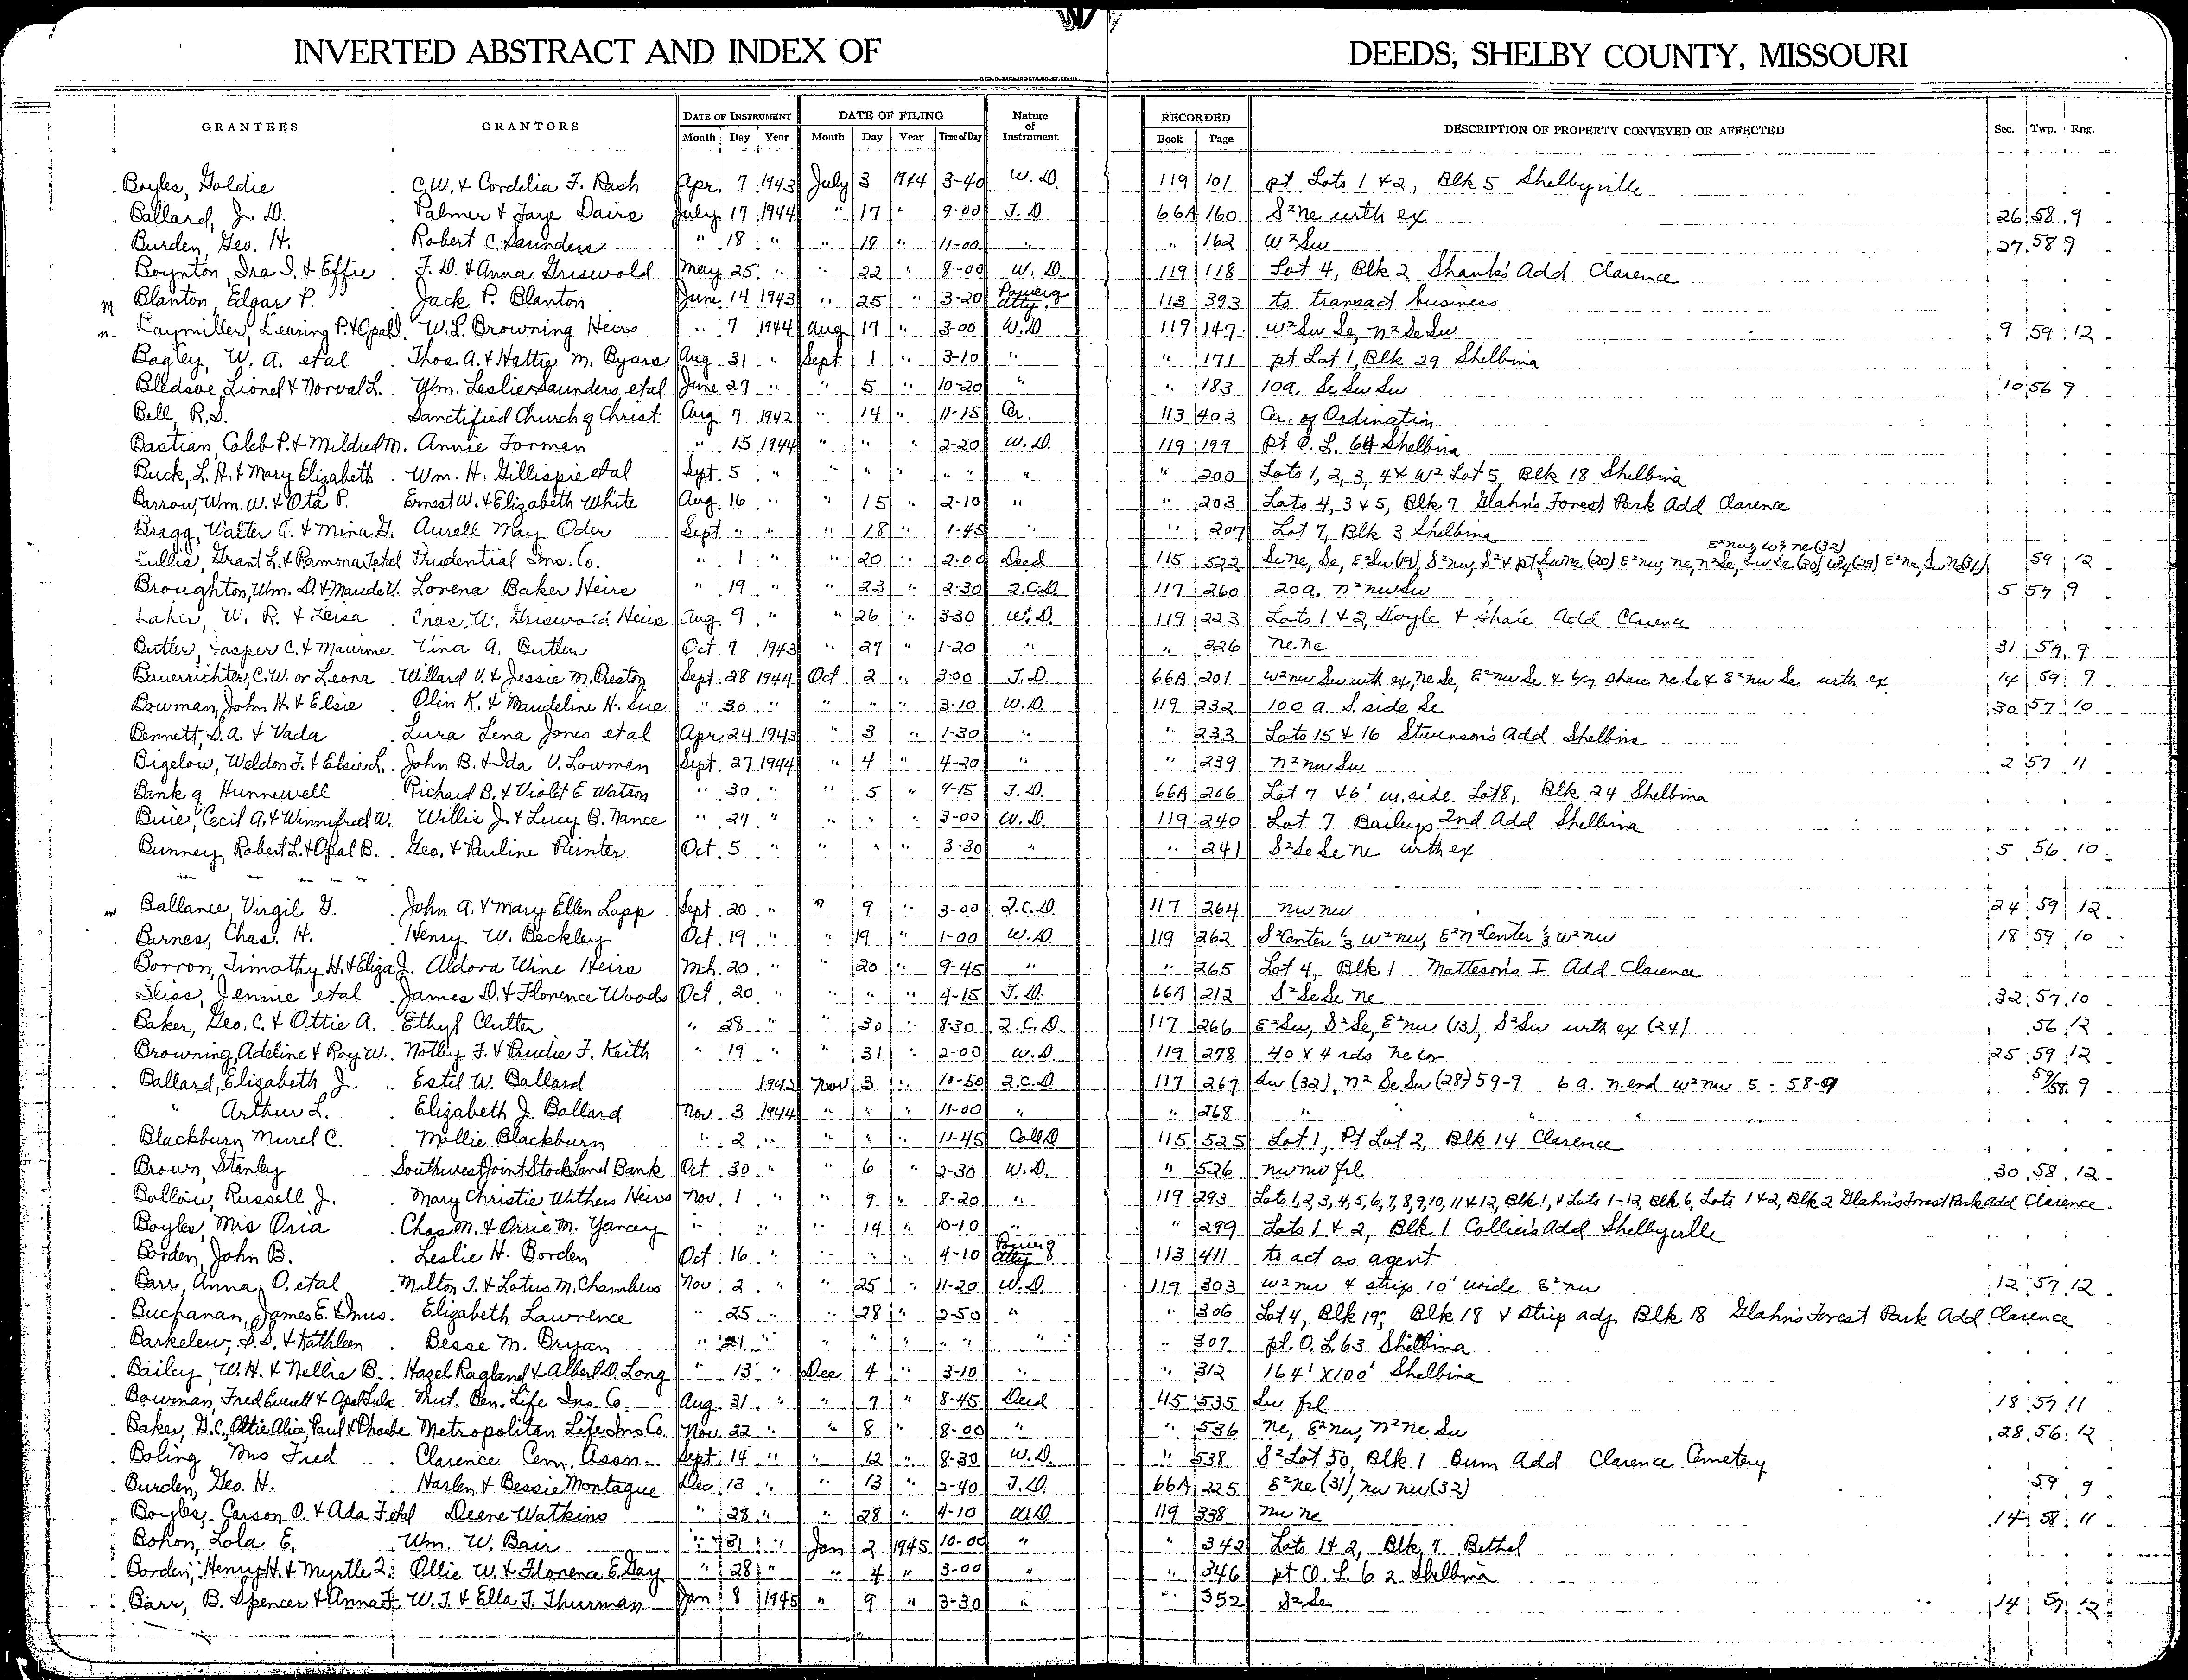 INVERTED ABSTRACT AND INDEX OF DEEDS, SHELBY COUNTY, MISSOURI
GEO. D. BARNARD STA. CO. ST. LOUIS
GRANTEES GRANTORS DATE OF INSTRUMENT Month Day Year DATE OF FILING Month Day Year Time of Day Nature of Instrument RECORDED Book Page DESCRIPTION OF PROPERTY CONVEYED OR AFFECTED Sec. Twp. Rng.
Boyles, Goldie C.W. & Cordelia F. Rash Apr 7 1943 July 3 1944 3-40 W.D. 119 101 pt Lots 1 & 2, Blk 5 Shelbyville
Ballard, J. D. Palmer & Faye Dairs July 17 1944 " 17 " 9-00 T.D 66A 160 S²ne with ex 26 58 9
Burden, Geo. H. Robert C. Saunders " 18 " " 18 " 11-00 " " 162 W²Sw 27 58 9
Boynton, Ira I. & Effie F. D. & Anna Griswold May 25 " " 22 " 8-00 W.D. 119 118 Lot 4, Blk 2 Shank's Add Clarence
Blanton, Edgar P. Jack P. Blanton June 14 1943 " 25 " 3-20 Power of Atty. 113 393 to transact business
Baymiller, Learing P. & Opal W.L. Browning Heirs " 7 1944 Aug 17 " 3-00 W.D 119 147 W²Sw Se, n²SeSw 9 59 12
Bagley, W. A. etal Thos. A. & Hattie M. Byars Aug. 31 " Sept 1 " 3-10 " " 171 pt Lot 1, Blk 29 Shelbina
Bledsoe, Lionel & Norval L. Wm. Leslie Saunders etal June 27 " " 5 " 10-20 " " 183 10a. Se Sw Sw 10 56 9
Bell, R.S. Sanctified Church of Christ Aug 7 1942 " 14 " 11-15 Cer. 113 402 Cer. of Ordination
Bastian, Caleb P. & Mildred M. Annie Forman " 15 1944 " " " 2-20 W.D. 119 199 pt O. L. 64 Shelbina
Buck, L. H. & Mary Elizabeth Wm. H. Gillispie etal Sept. 5 " " " " " " " " 200 Lots 1, 2, 3, 4 & W² Lot 5, Blk 18 Shelbina
Barrow, Wm. W. & Ota P. Ernest W. & Elizabeth White Aug. 16 " " 15 " 2-10 " " 203 Lots 4, 3 & 5, Blk 7 Glahn's Forest Park Add Clarence
Bragg, Walter C. & Mina G. Aurell May Oder Sept " " " 18 " 1-45 " " 207 Lot 7, Blk 3 Shelbina
Grant L. & Ramona T etal Prudential Ins. Co. " 1 " " 20 " 2-00 Deed 115 522 SeNe, Se, E²Sw (19), S²nw, S² & pt SwNe (20) E²nw, ne, n²Se, SwSe (30) W½(29) E²ne, Sw Ne(31) E²nw, W² ne (32) 59 12
Broughton, Wm. D. & Maude V. Lorena Baker Heirs " 19 " " 23 " 2-30 Q.C.D 117 260 20a. n²nwSw 5 57 9
W. R. & Leisa Chas. W. Griswold Heirs Aug 9 " " 26 " 3-30 W.D. 119 223 Lots 1 & 2, Doyle & Add Clarence
Butler, Jasper C. & Maurine Tina A. Butler Oct. 7 1943 " 27 " 1-20 " " 226 ne ne 31 59 9
Bauerrichter, C.W. or Leona Willard V. & Jessie M. Preston Sept. 28 1944 Oct 2 " 3-00 T.D. 66A 201 W²nw Sw with ex, ne Se, E²nw Se & 6/7 share ne Se & E²nw Se with ex 14 59 9
Bowman, John H. & Elsie Olin K. & Maudeline H. Sue " 30 " " " " 3-10 W.D. 119 232 100 a. S. side Se 30 57 10
Bennett, S.A. & Vada Lura Lena Jones etal Apr 24 1943 " 3 " 1-30 " " 233 Lots 15 & 16 Stevenson's Add Shelbina
Bigelow, Weldon F. & Elsie L. John B. & Ida V. Lowman Sept. 27 1944 " 4 " 4-20 " " 239 n²nw Sw 2 57 11
Bank of Hunnewell Richard B. & Violet E Watson " 30 " " 5 " 9-15 T.D. 66A 206 Lot 7 & 6' W. side Lot 8, Blk 24 Shelbina
Buie, Cecil A. & Winnifred W. Willie J. & Lucy B. Nance " 27 " " " " 3-00 W.D. 119 240 Lot 7 Baileys 2nd Add Shelbina
Bunney, Robert L. & Opal B. Geo. & Pauline Painter Oct 5 " " " " 3-30 " " 241 S²SeSe ne with ex 5 56 10
Ballance, Virgil G. John A. & Mary Ellen Lapp Sept. 20 " " 9 " 3-00 Q.C.D 117 264 nw nw 24 59 12
Burnes, Chas. H. Henry W. Beckley Oct 19 " " 19 " 1-00 W.D. 119 262 S²Center ⅓ W²nw, E²n²Center ⅓ W²nw 18 59 10
Borron, Timothy H. & Eliza J. Aldora Wine Heirs Mch. 20 " " 20 " 9-45 " " 265 Lot 4, Blk 1 Matteson's I Add Clarence
Bliss, Jennie etal James D. & Florence Woods Oct. 20 " " " " 4-15 T.D. 66A 212 S²SeSe Ne 32 57 10
Baker, Geo. C. & Ottie A. Ethyl Clutter " 28 " " 30 " 8-30 Q.C.D. 117 266 E²Sw, S²Se, E²nw (13), S²Sw with ex (24) 56 12
Browning, Adeline & Roy W. Notley F. & Prudie F. Keith " 19 " " 31 " 2-00 W.D 119 278 40 X 4 rds ne cor 25 59 12
Ballard, Elizabeth J. Estil W. Ballard 1942 Nov 3 " 10-50 Q.C.D 117 267 Sw (32), n² Se Sw (28) 59-9 6 a. n. end W²nw 5-58-9 59/58 9
" Arthur L. Elizabeth J. Ballard Nov. 3 1944 " " " 11-00 " " 268 " " " "
Blackburn, Murel C. Mollie Blackburn " 2 " " " " 11-45 Coll D 115 525 Lot 1, Pt Lot 2, Blk 14 Clarence
Brown, Stanley Southwest Joint Stock Land Bank Oct. 30 " " 6 " 2-30 W.D. " 526 nw nw frl 30 58 12
Ballow, Russell J. Mary Christie Withers Heirs Nov 1 " " 9 " 8-20 " 119 293 Lots 1,2,3,4,5,6,7,8,9,10,11 & 12, Blk 1, & Lots 1-12, Blk 6, Lots 1 & 2, Blk 2 Glahn's Forest Park add Clarence.
Boyles, Mrs Oria Chas M. & Orrie M. Yancey " " " 14 " 10-10 " " 299 Lots 1 & 2, Blk 1 Collier's Add Shelbyville
Borden, John B. Leslie H. Borden Oct 16 " " " " 4-10 Power of Atty 113 411 to act as agent
Barr, Anna O. etal Milton T. & Lotus M. Chambers Nov 2 " " 25 " 11-20 W.D. 119 303 W²nw & strip 10' wide E²nw 12 57 12
Buchanan, James E. & Elizabeth Lawrence " 25 " " 28 " 2-50 " " 306 Lot 4, Blk 19; Blk 18 & Strip adj. Blk 18 Glahn's Forest Park Add Clarence
Barkelew, S.S. & Kathleen Besse M. Bryan " 21 " " " " " " " " 307 pt. O. L. 63 Shelbina
Bailey, W. H. & Nellie B. Hazel Ragland & Albert D. Long " 13 " Dec 4 " 3-10 " " 312 164' X 100' Shelbina
Bowman, Fred Everett & Opal Lula Mut. Ben. Life Ins. Co. Aug 31 " " 7 " 8-45 Deed 115 535 Sw frl 18 57 11
Baker, G.C., Ottie Alice, Paul & Phoebe Metropolitan Life Ins Co. Nov 22 " " 8 " 8-00 " " 536 Ne, E²nw, n²ne Sw 28 56 12
Boling, Mrs Fred Clarence Cem. Assn. Sept 14 " " 12 " 8-30 W.D. " 538 S²Lot 50, Blk 1 Bum Add Clarence Cemetery
Burden, Geo. H. Harlen & Bessie Montague Dec 13 " " 13 " 2-40 T.D. 66A 225 E²ne (31), nw nw (32) 59 9
Boyles, Carson O. & Ada F etal Deane Watkins " 28 " " 28 " 4-10 W.D 119 338 nw ne 14 58 11
Bohon, Lola E. Wm. W. Bair " 31 " Jan 2 1945 10-00 " " 342 Lots 1 & 2, Blk 7 Bethel
Borden, Henry H. & Myrtle Q. Ollie W. & Florence E. Gay " 28 " " 4 " 3-00 " " 346 pt O. L. 62 Shelbina
Barr, B. Spencer & Anna F. W. T. & Ella T. Thurman Jan 8 1945 " 9 " 3-30 " " 352 S²Se 14 57 12